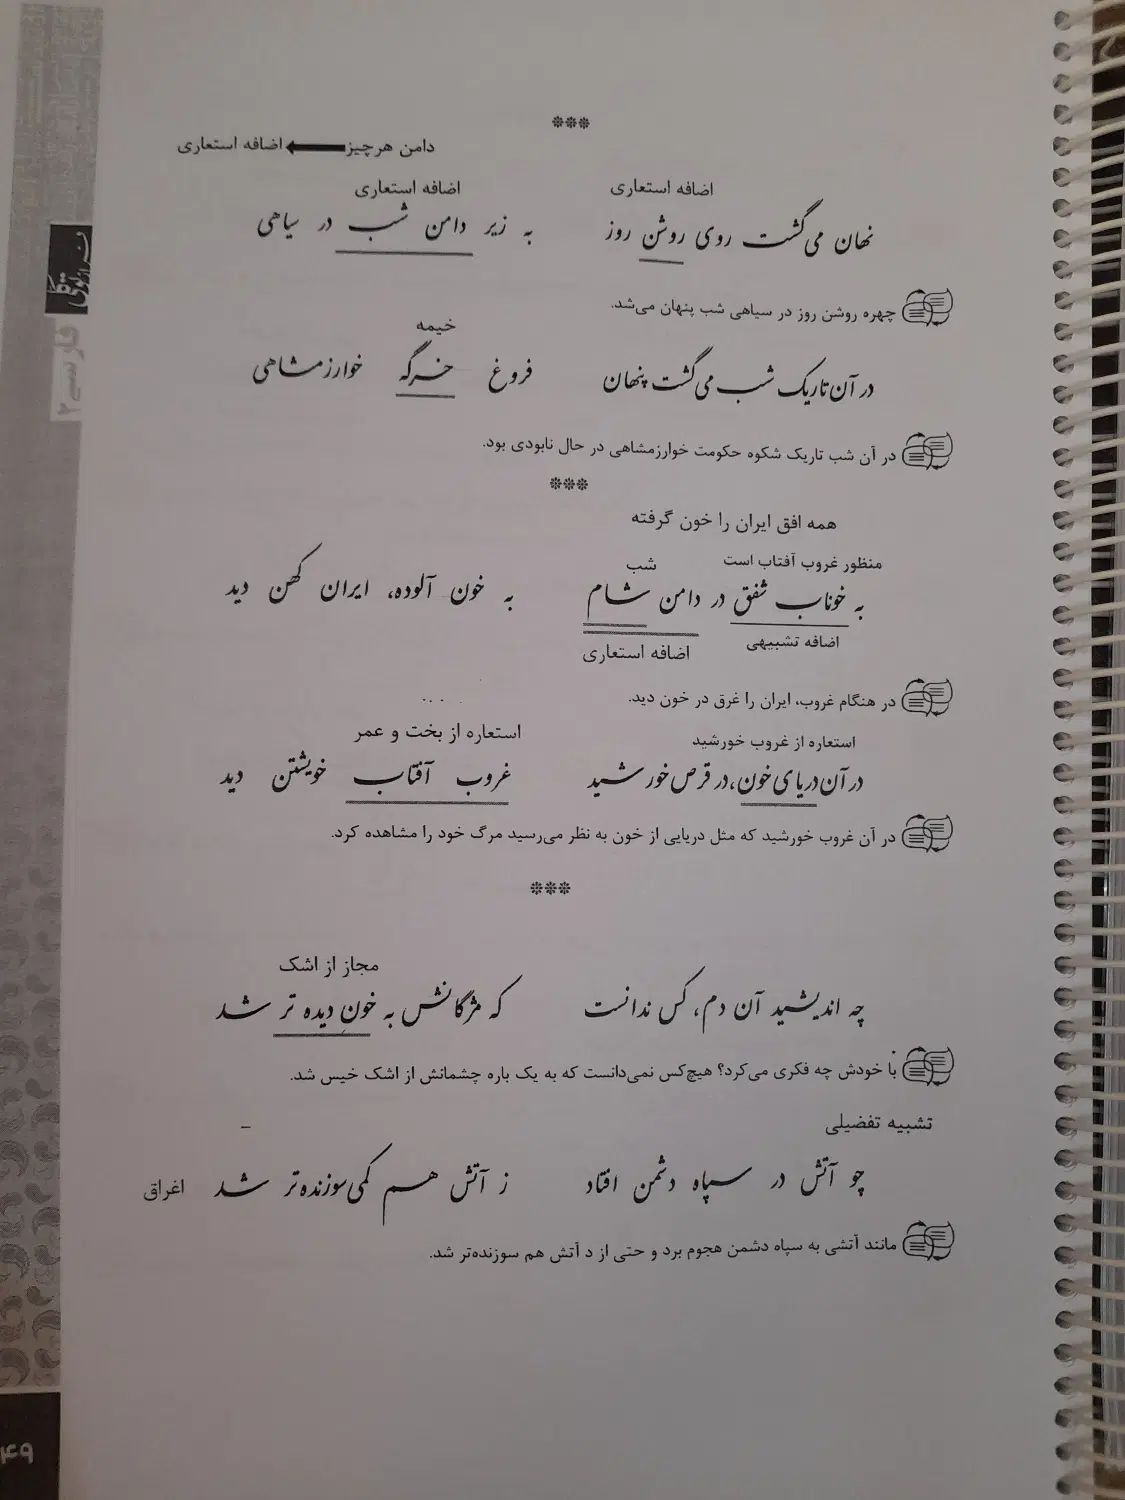 ***
دامن هرچیز ← اضافه استعاری
اضافه استعاری اضافه استعاری
نهان می‌گشت روی روشن روز به زیر دامن شب در سیاهی
چهره روشن روز در سیاهی شب پنهان می‌شد.
خیمه
در آن تاریک شب می‌گشت پنهان فروغ خرگه خوارزمشاهی
در آن شب تاریک شکوه حکومت خوارزمشاهی در حال نابودی بود.
***
همه افق ایران را خون گرفته
منظور غروب آفتاب است شب
به خوناب شفق در دامن شام به خون آلوده، ایران کهن دید
اضافه تشبیهی اضافه استعاری
در هنگام غروب، ایران را غرق در خون دید.
استعاره از غروب خورشید استعاره از بخت و عمر
در آن دریای خون، در قرص خورشید غروب آفتاب خویشتن دید
در آن غروب خورشید که مثل دریایی از خون به نظر می‌رسید مرگ خود را مشاهده کرد.
***
مجاز از اشک
چه اندیشید آن دم، کس ندانست که مژگانش به خون دیده تر شد
با خودش چه فکری می‌کرد؟ هیچ‌کس نمی‌دانست که به یک باره چشمانش از اشک خیس شد.
تشبیه تفضیلی
چو آتش در سپاه دشمن افتاد ز آتش هم کمی سوزنده‌تر شد اغراق
مانند آتشی به سپاه دشمن هجوم برد و حتی از د آتش هم سوزنده‌تر شد.
فارسی ۲
۴۹